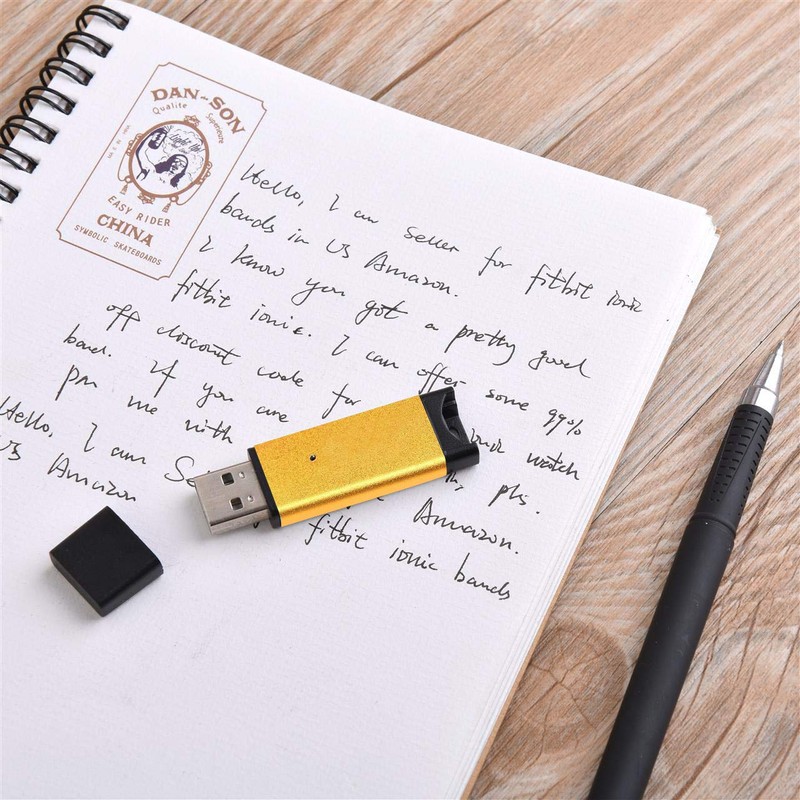 DAN-SON
Qualite Superieure
Light Up
EASY RIDER
CHINA
SYMBOLIC SKATEBOARDS
Hello, I am seller for fitbit ionic
bands in US Amazon.
I know you got a pretty good
fitbit ionic. I can offer some 99%
off discount code for
band. If you are ionic watch
pm me with pls.
Hello, I am Se Amazon.
US Amazon fitbit ionic bands